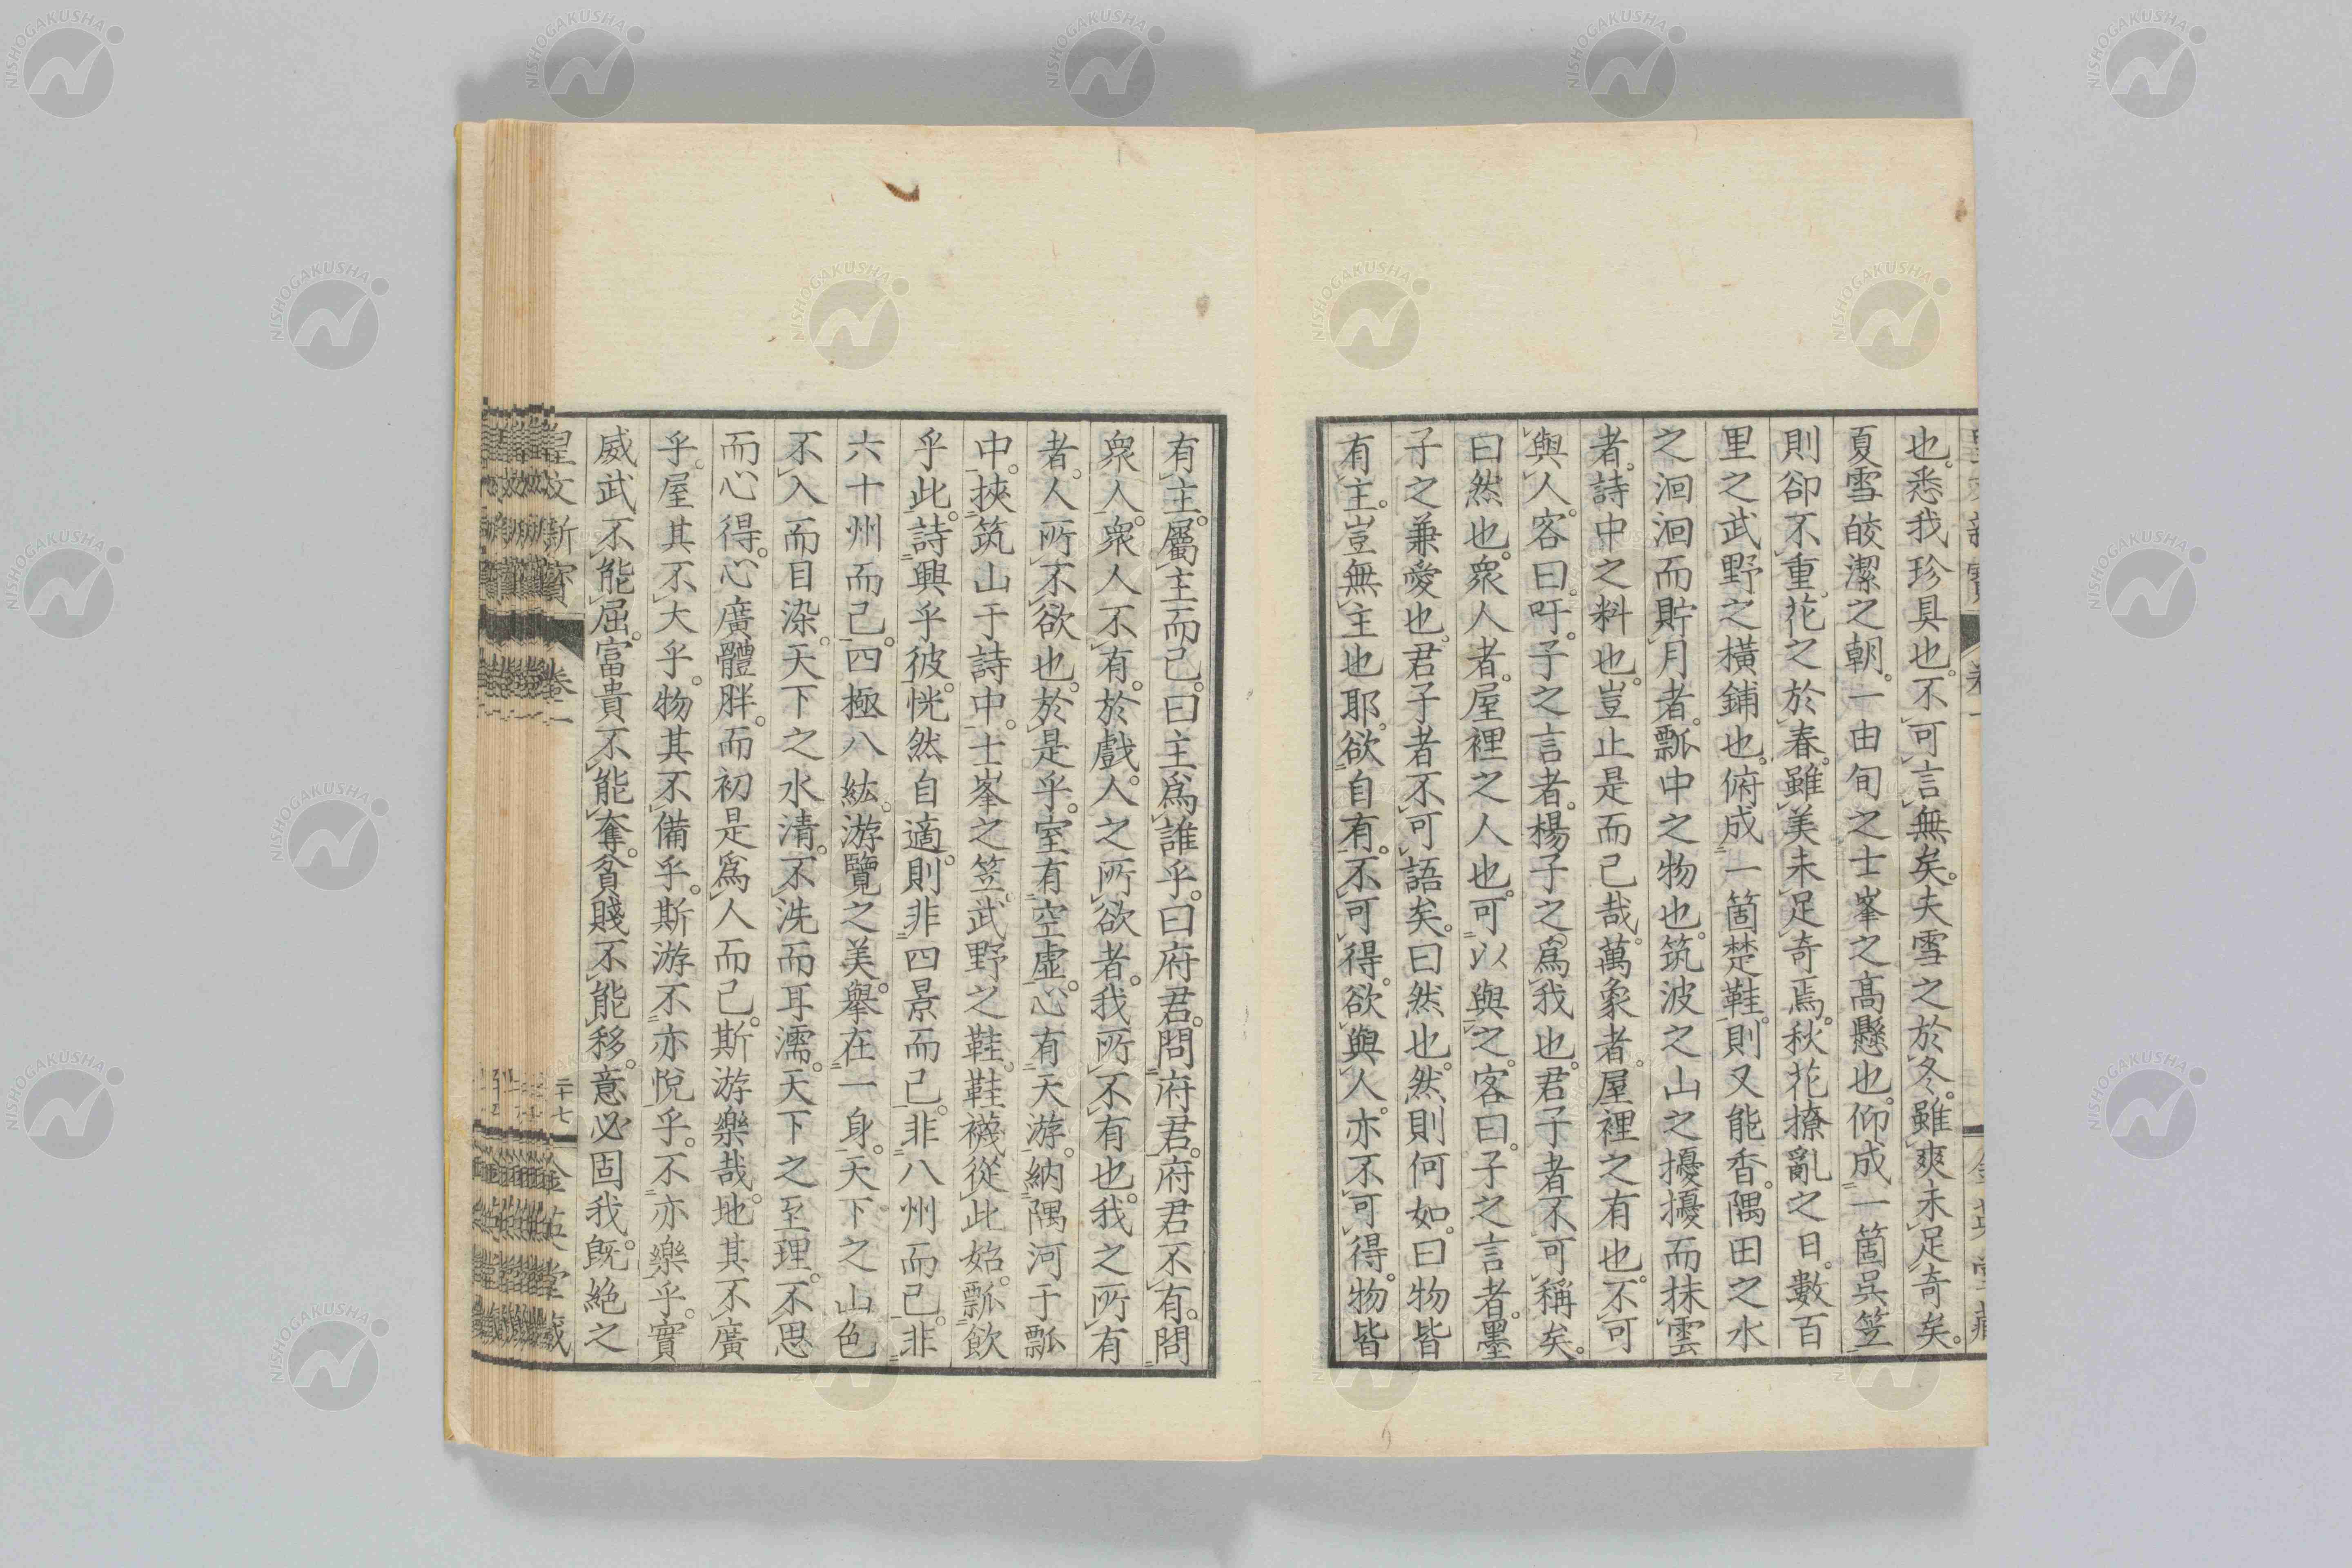 也。悉我珍具也。不可言無矣。夫雪之於冬。雖爽未足奇矣。
夏雪皎潔之朝。一由旬之士峯之高懸也。仰成一箇呉笠
則卻不重。花之於春。雖美未足奇焉。秋花撩亂之日。數百
里之武野之橫鋪也。俯成一箇楚鞋。則又能香。隅田之水
之洄洄而貯月者。瓢中之物也。筑波之山之擾擾而抹雲
者。詩中之料也。豈止是而已哉。萬象者。屋裡之有也。不可
與人。客曰。吁。子之言者。楊子之爲我也。君子者不可稱矣。
曰然也。衆人者。屋裡之人也。可以與之。客曰。子之言者。墨
子之兼愛也。君子者不可語矣。曰然也。然則何如。曰物皆
有主。豈無主也耶。欲自有。不可得。欲與人。亦不可得。物皆
有主。屬主而已。曰主爲誰乎。曰府君。問府君。府君不有。問
衆人。衆人不有。於戲。人之所欲者。我所不有也。我之所有
者。人所不欲也。於是乎。室有空虛。心有天游。納隅河于瓢
中。挾筑山于詩中。士峯之笠。武野之鞋。鞋襪從此始。瓢飲
乎此。詩興乎彼。恍然自適。則非四景而已。非八州而已。非
六十州而已。四極八紘。游覽之美。舉在一身。天下之山色
不入而目染。天下之水清。不洗而耳濡。天下之至理。不思
而心得。心廣體胖。而初是爲人而已。斯游樂哉。地其不廣
乎。屋其不大乎。物其不備乎。斯游不亦悅乎。不亦樂乎。實
威武不能屈。富貴不能奪。貧賤不能移。意必固我。既絶之
皇文新寶
卷一
二十七
金英堂藏